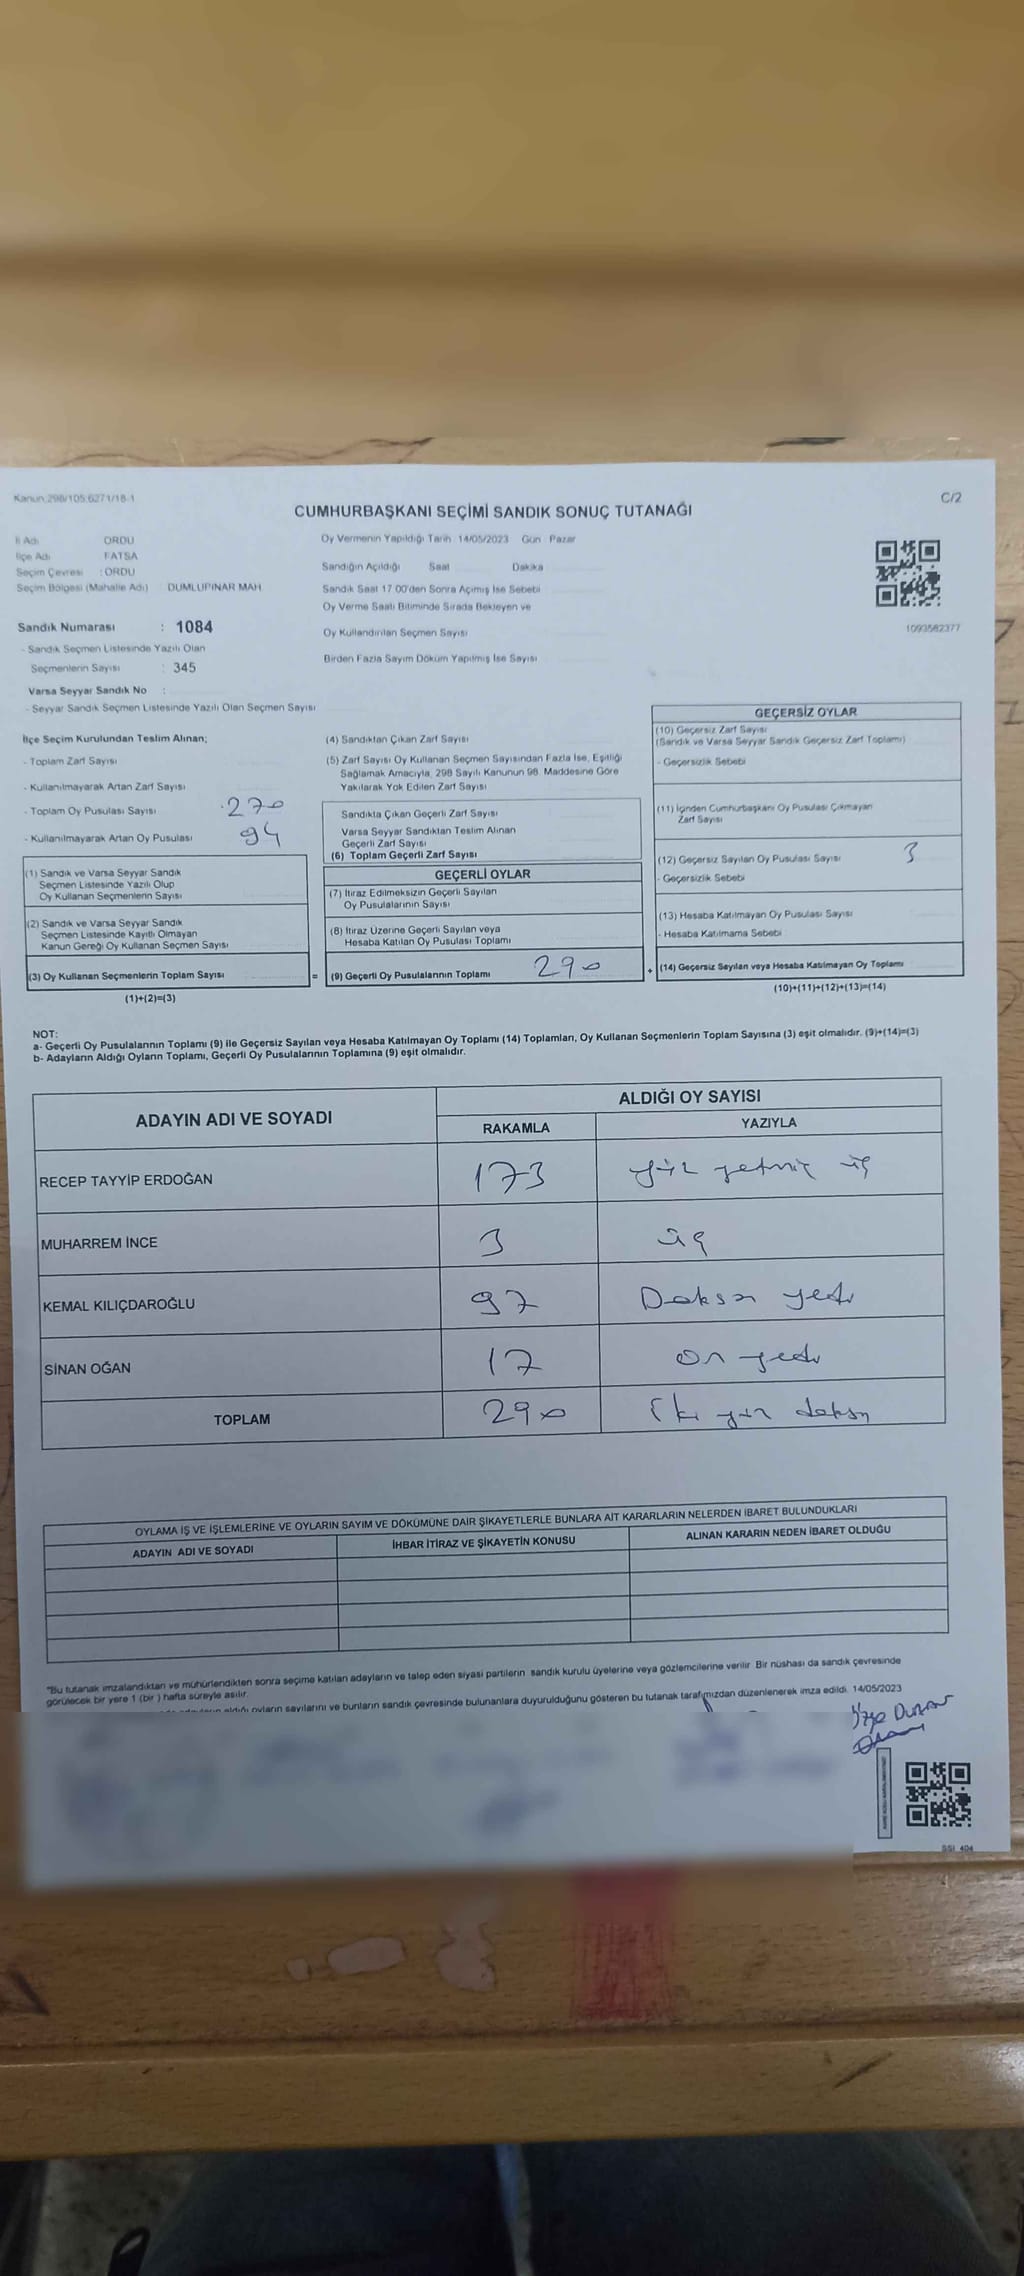 Kanun:298/105;6271/18-1
C/2
CUMHURBAŞKANI SEÇİMİ SANDIK SONUÇ TUTANAĞI
İl Adı : ORDU
İlçe Adı : FATSA
Seçim Çevresi : ORDU
Seçim Bölgesi (Mahalle Adı) : DUMLUPINAR MAH
Sandık Numarası : 1084
- Sandık Seçmen Listesinde Yazılı Olan
Seçmenlerin Sayısı : 345
Varsa Seyyar Sandık No :
- Seyyar Sandık Seçmen Listesinde Yazılı Olan Seçmen Sayısı
Oy Vermenin Yapıldığı Tarih 14/05/2023 Gün Pazar
Sandığın Açıldığı Saat Dakika
Sandık Saat 17.00'den Sonra Açımış İse Sebebi
Oy Verme Saati Bitiminde Sırada Bekleyen ve
Oy Kullandırılan Seçmen Sayısı
Birden Fazla Sayım Döküm Yapılmış İse Sayısı
1093562377
İlçe Seçim Kurulundan Teslim Alınan;
- Toplam Zarf Sayısı
- Kullanılmayarak Artan Zarf Sayısı
- Toplam Oy Pusulası Sayısı 270
- Kullanılmayarak Artan Oy Pusulası 94
(1) Sandık ve Varsa Seyyar Sandık
Seçmen Listesinde Yazılı Olup
Oy Kullanan Seçmenlerin Sayısı
(2) Sandık ve Varsa Seyyar Sandık
Seçmen Listesinde Kayıtlı Olmayan
Kanun Gereği Oy Kullanan Seçmen Sayısı
(3) Oy Kullanan Seçmenlerin Toplam Sayısı
(1)+(2)=(3)
(4) Sandıktan Çıkan Zarf Sayısı
(5) Zarf Sayısı Oy Kullanan Seçmen Sayısından Fazla İse, Eşitliği
Sağlamak Amacıyla, 298 Sayılı Kanunun 98. Maddesine Göre
Yakılarak Yok Edilen Zarf Sayısı
Sandıkta Çıkan Geçerli Zarf Sayısı
Varsa Seyyar Sandıktan Teslim Alınan
Geçerli Zarf Sayısı
(6) Toplam Geçerli Zarf Sayısı
GEÇERLİ OYLAR
(7) İtiraz Edilmeksizin Geçerli Sayılan
Oy Pusulalarının Sayısı
(8) İtiraz Üzerine Geçerli Sayılan veya
Hesaba Katılan Oy Pusulası Toplamı
= (9) Geçerli Oy Pusulalarının Toplamı 290
GEÇERSİZ OYLAR
(10) Geçersiz Zarf Sayısı
(Sandık ve Varsa Seyyar Sandık Geçersiz Zarf Toplamı)
- Geçersizlik Sebebi
(11) İçinden Cumhurbaşkanı Oy Pusulası Çıkmayan
Zarf Sayısı
(12) Geçersiz Sayılan Oy Pusulası Sayısı 3
- Geçersizlik Sebebi
(13) Hesaba Katılmayan Oy Pusulası Sayısı
- Hesaba Katılmama Sebebi
+ (14) Geçersiz Sayılan veya Hesaba Katılmayan Oy Toplamı
(10)+(11)+(12)+(13)=(14)
NOT:
a- Geçerli Oy Pusulalarının Toplamı (9) ile Geçersiz Sayılan veya Hesaba Katılmayan Oy Toplamı (14) Toplamları, Oy Kullanan Seçmenlerin Toplam Sayısına (3) eşit olmalıdır. (9)+(14)=(3)
b- Adayların Aldığı Oyların Toplamı, Geçerli Oy Pusulalarının Toplamına (9) eşit olmalıdır.
ADAYIN ADI VE SOYADI
ALDIĞI OY SAYISI
RAKAMLA YAZIYLA
RECEP TAYYİP ERDOĞAN 173 yüz yetmiş üç
MUHARREM İNCE 3 üç
KEMAL KILIÇDAROĞLU 97 Doksan yedi
SİNAN OĞAN 17 On yedi
TOPLAM 290 İki yüz doksan
OYLAMA İŞ VE İŞLEMLERİNE VE OYLARIN SAYIM VE DÖKÜMÜNE DAİR ŞİKAYETLERLE BUNLARA AİT KARARLARIN NELERDEN İBARET BULUNDUKLARI
ADAYIN ADI VE SOYADI İHBAR İTİRAZ VE ŞİKAYETİN KONUSU ALINAN KARARIN NEDEN İBARET OLDUĞU
"Bu tutanak imzalandıktan ve mühürlendikten sonra seçime katılan adayların ve talep eden siyasi partilerin sandık kurulu üyelerine veya gözlemcilerine verilir. Bir nüshası da sandık çevresinde
görülecek bir yere 1 (bir ) hafta süreyle asılır.
aldığı oyların sayılarını ve bunların sandık çevresinde bulunanlara duyurulduğunu gösteren bu tutanak tarafımızdan düzenlenerek imza edildi. 14/05/2023
SSI 404